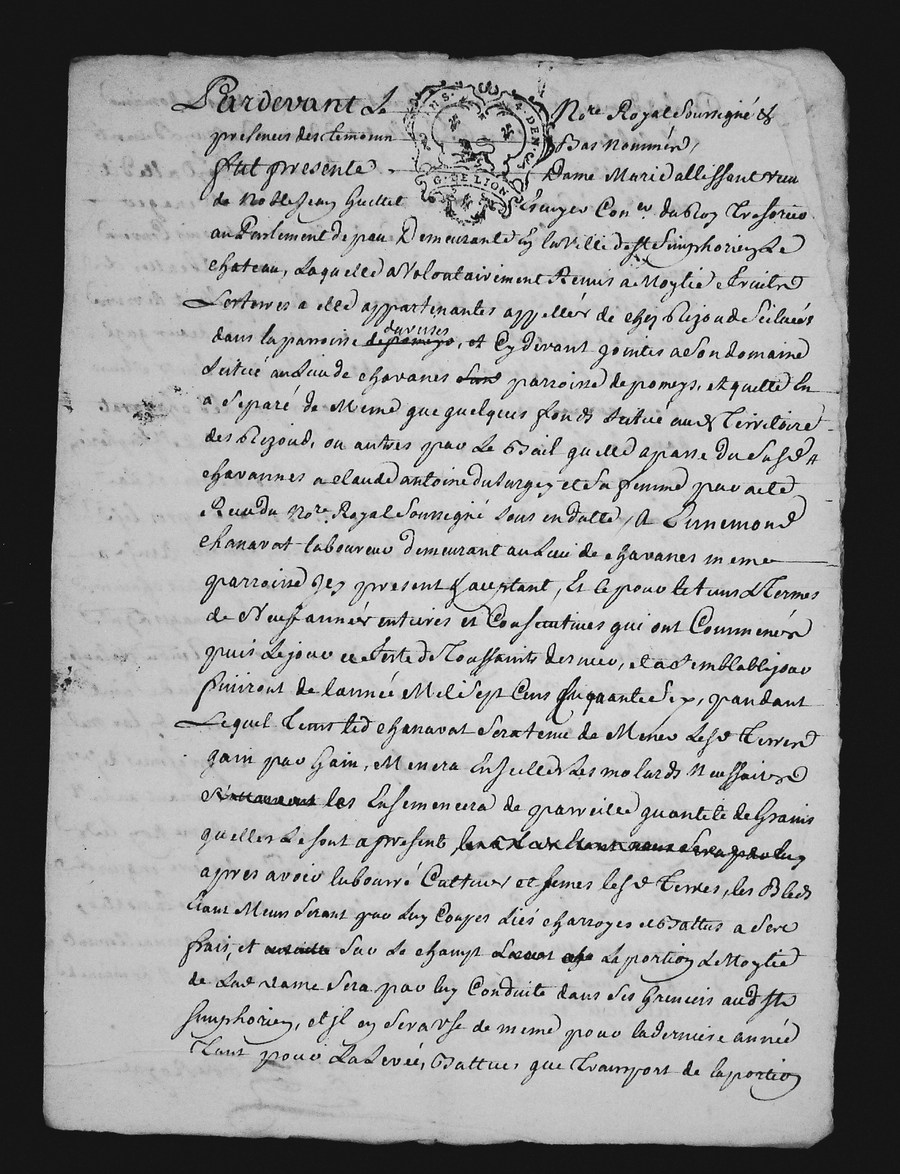 Pardevant Le Nore Royal Soussigné &
presence des temoins Bas nommés,
fut presente Dame Marie allissant veu
de Noble Jean Guillet Ecuyer Coner du Roy Tresorier
au Parlement de pau Demeurante En la ville de St Simphorien Le
chateau, Laquelle a volontairement Remis a Moytié de fruits
Les terres a elle appartenantes appellées de chez Rizoud Scituées
dans la parroisse de pomeys duresses, et Cydevant jointes a Son domaine
Scitué au Lieu de chavanes parroisse de pomeys, et quelle En
a Separé de Meme que quelques fonds Scitué aud Territoire
des Rizoud, ou autres par Le Bail quelle a passé du Susd
chavannes a claude antoine du Surgey et Sa femme par acte
Receu du Nore Royal Soussigné Sous Sa datte, A Ennemond
chanavat laboureur demeurant au Lieu de chavanes meme
parroisse Icy present & aceptant, Et ce pour le tems & Termes
de Neuf années entieres et Consecutives qui ont Commencés
puis Lejour et feste de Toussaints dernier, et a Semblable jour
finiront de lannée Mil Sept Cens Cinquante Six, pandant
Lequel Tems led chanavat Sera tenu de Mener Lesd Terres
gain par Gain, Menera En Icelles Les molards Necessaires
les Ensemencera de pareille quantité de Grains
quelles Le Sont apresent,
apres avoir labourré Cultiver et semes lesd Terres, les Bleds
Etant Meurs Seront par Luy Coupés Liés charroyes et Battus a Ses
frais, et Sur Le champt La portion de Moytié
de Lad dame Sera par luy Conduite dans Ses Greniers aud St
Simphorien, et Il en Sera usé de meme pour la derniere année
Tant pour La Levée, Battues que Transport de la portion
G. DE LION
DEN